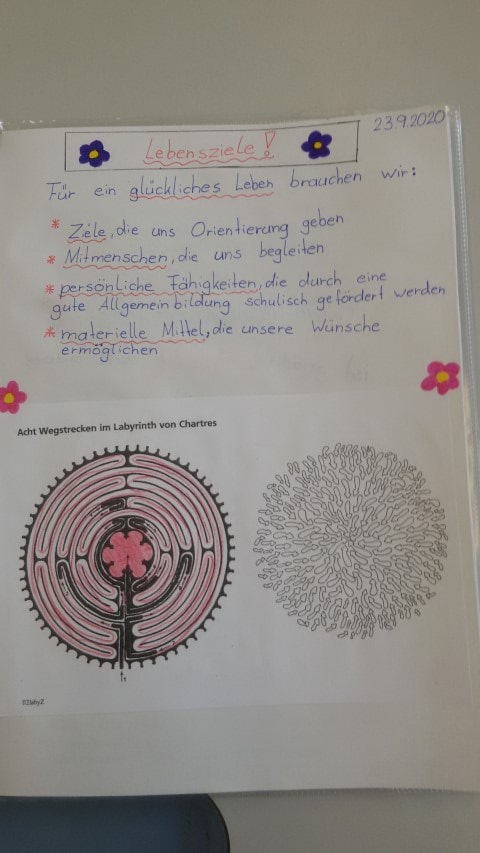 23.9.2020
Lebensziele!
Für ein glückliches Leben brauchen wir:
* Ziele, die uns Orientierung geben
* Mitmenschen, die uns begleiten
* persönliche Fähigkeiten, die durch eine
gute Allgemeinbildung schulisch gefördert werden
* materielle Mittel, die unsere Wünsche
ermöglichen
Acht Wegstrecken im Labyrinth von Chartres